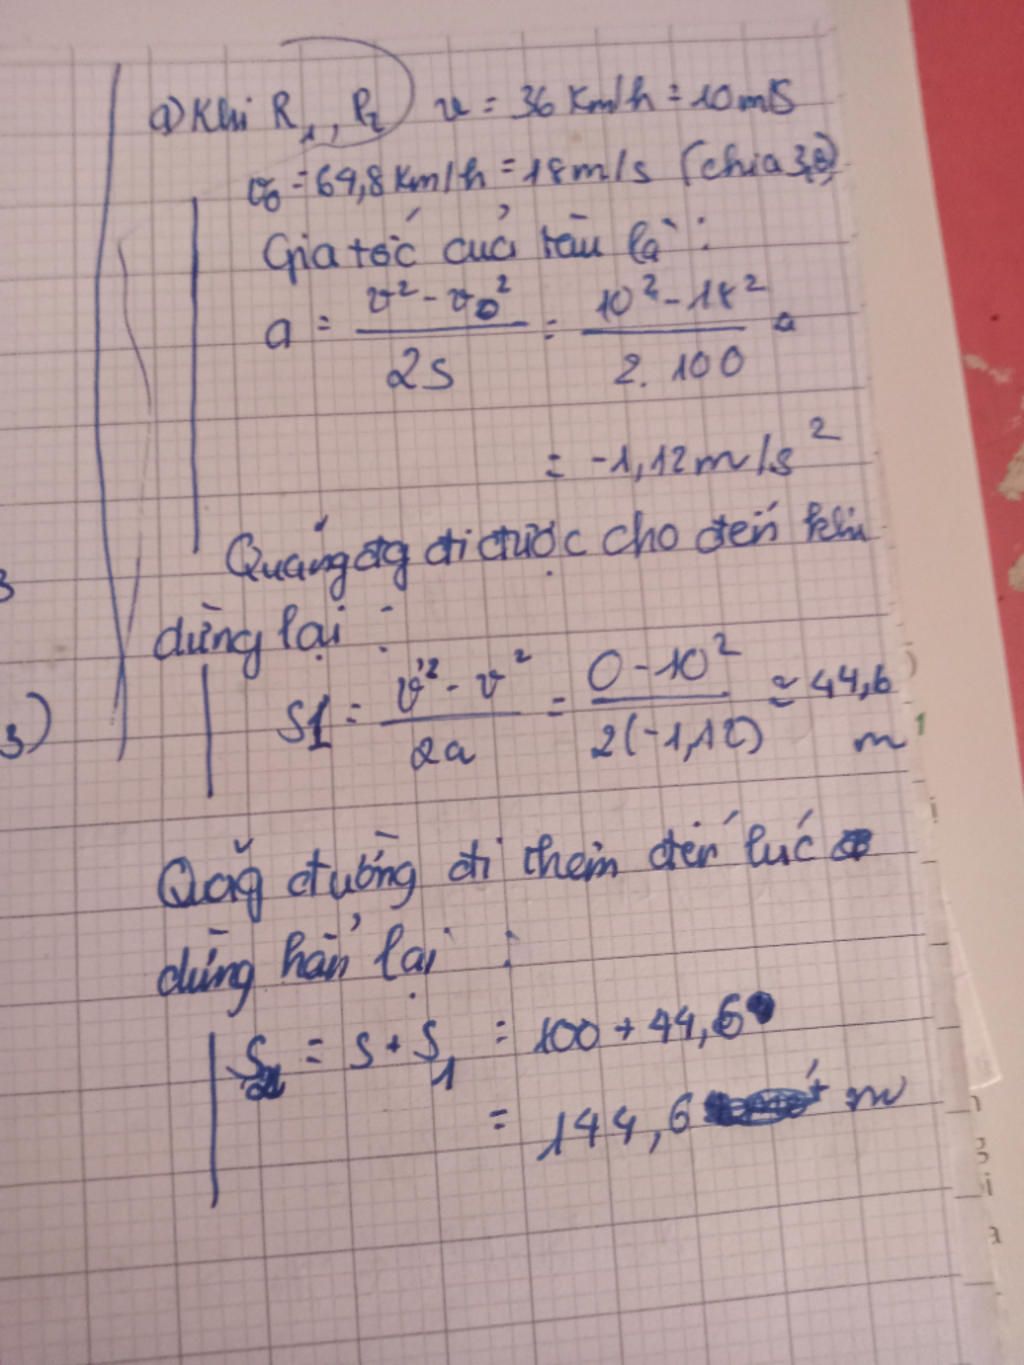 a) Khi R₁, R₂ v = 36 Km/h = 10 m/s
v₀ = 64,8 Km/h = 18 m/s (chia 3,6)
Gia tốc của tàu là :
a = (v² - v₀²)/(2s) = (10² - 18²)/(2. 100)
= -1,12 m/s²
Quảng đg đi được cho đến khi
dừng lại :
S1 = (v'² - v²)/(2a) = (0 - 10²)/(2(-1,12)) ≈ 44,6
m
3)
Quãg đường đi thêm đến lúc
dừng hẳn lại :
S₂ = S + S₁ = 100 + 44,6
= 144,6 m